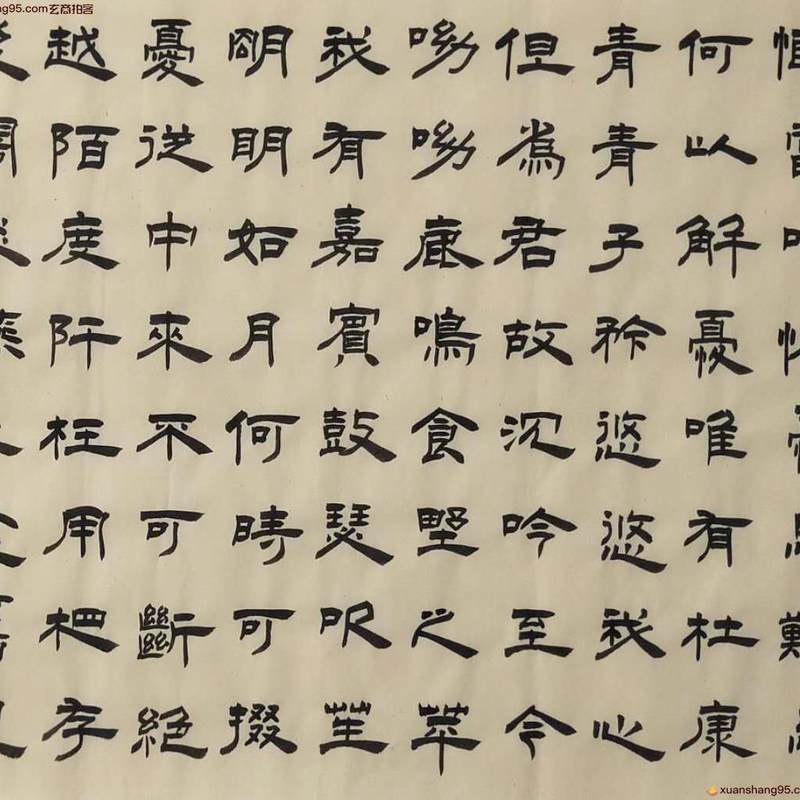 ng95.com玄商拍客
何以解憂唯有杜康
青青子衿悠悠我心
但爲君故沉吟至今
呦呦鹿鳴食野之苹
我有嘉賓鼓瑟吹笙
明明如月何時可掇
憂從中來不可斷絕
越陌度阡枉用相存
xuanshang95.c